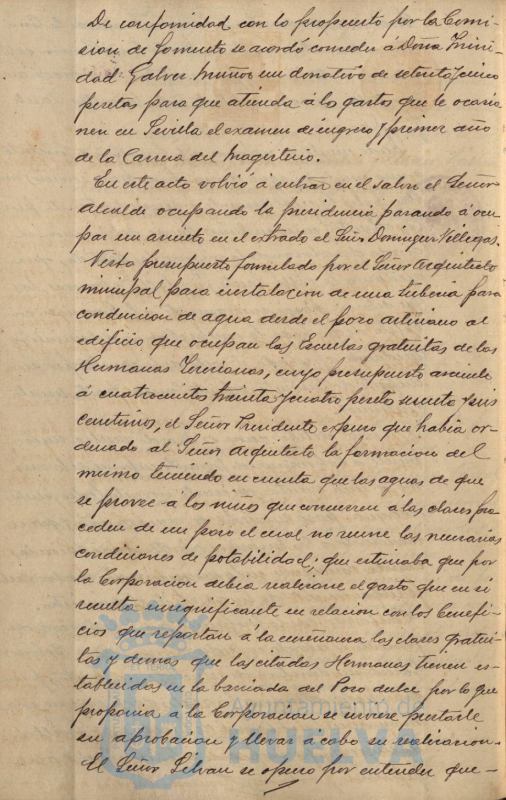 De conformidad con lo propuesto por la Comi-
sion de Fomento se acordó conceder á Doña Trini-
dad Galvez Muñoz un donativo de setenta y cinco
pesetas para que atienda á los gastos que le ocasio
nen en Sevilla el examen de ingreso y primer año
de la Carrera del Magisterio.
En este acto volvió á entrar en el salon el Señor
Alcalde ocupando la presidencia pasando á ocu
par un asiento en el estrado el Señor Dominguez Villegas.
Visto presupuesto formulado por el Señor Arquitecto
municipal para instalacion de una tuberia para
conduccion de agua desde el pozo artesiano al
edificio que ocupan las Escuelas gratuitas de las
Hermanas Teresianas, cuyo presupuesto asciende
á cuatrocientas treinta y cuatro pesetas sesenta y seis
centimos, el Señor Presidente expuso que habia or-
denado al Señor Arquitecto la formacion del
mismo teniendo en cuenta que las aguas de que
se provee á los niños que concurren á las clases pro
ceden de un pozo el cual no reune las necesarias
condiciones de potabilidad; que estimaba que por
la Corporacion debia realizarse el gasto que en si
resulta insignificante en relacion con los benefi-
cios que reportan á la enseñanza las clases gratui-
tas y demas que las citadas Hermanas tienen es-
tablecidas en la barriada del Pozo dulce por lo que
proponia á la Corporacion se sirviese prestarle
su aprobacion y llevar á cabo su realizacion.
El Señor Silvan se opuso por entender que-
Ayuntamiento de
HUELVA